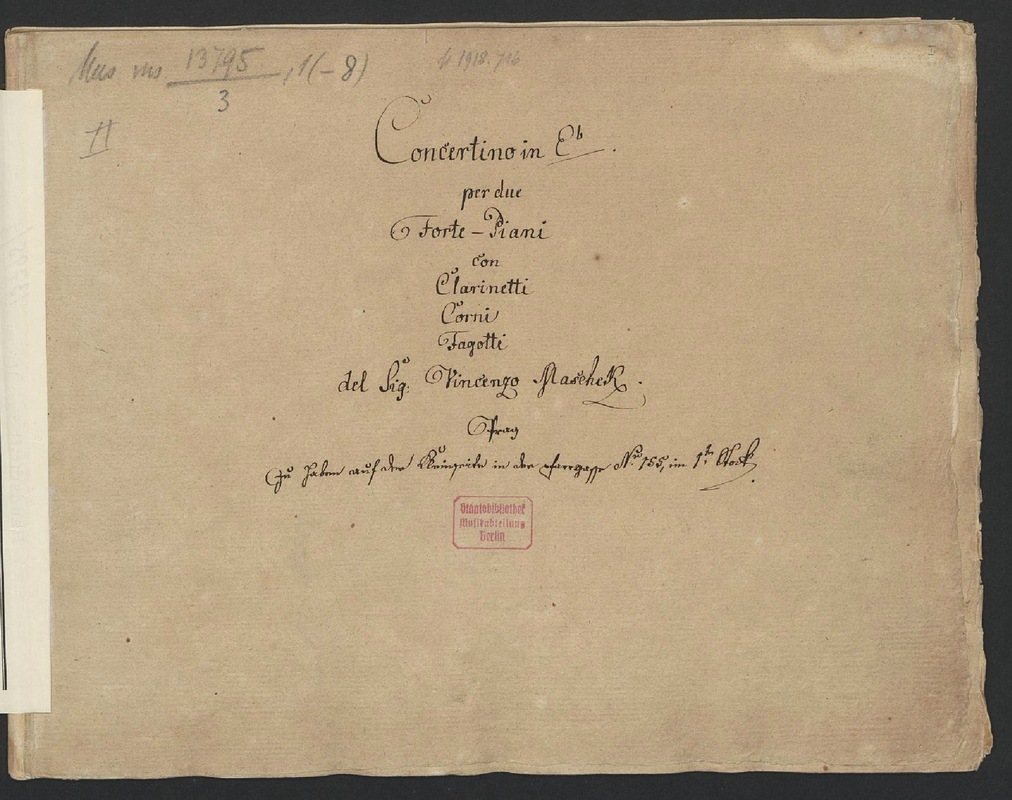 Mus. ms. 13795/3, 1(-8)
4 1918.716
I
II
Concertino in Eb.
per due
Forte-Piani
con
Clarinetti
Corni
Fagotti
del Sig: Vincenzo Maschek.
Prag
Zu haben auf der Kleinseite in der Pfarrgasse Nro 155, im 1ten Stock.
Staatsbibliothek
Musikabteilung
Berlin